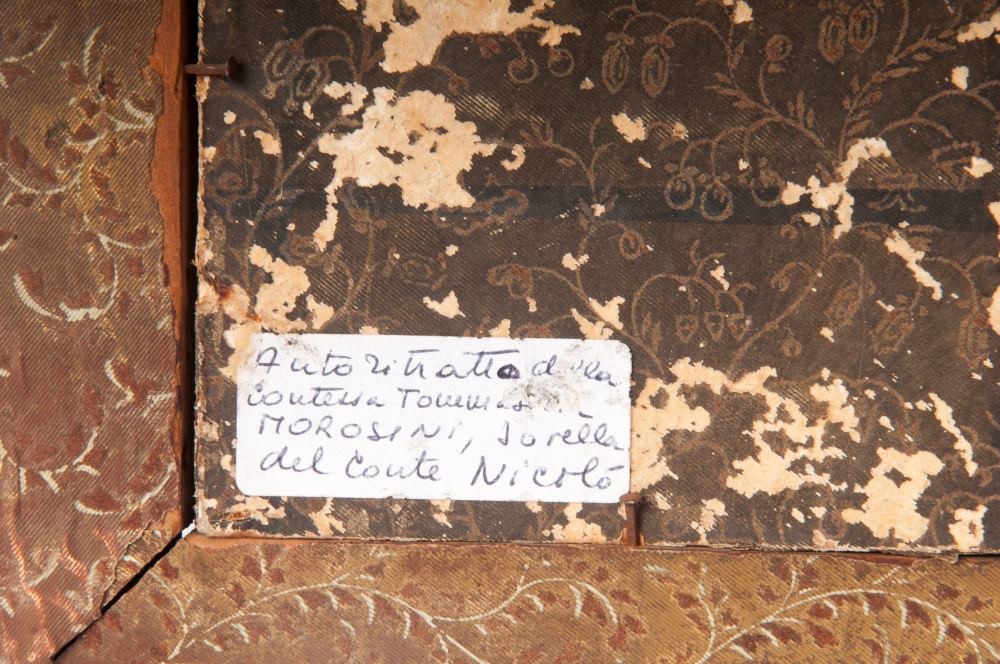 Autoritratto della
Contessa
MOROSINI, Sorella
del Conte Nicolò